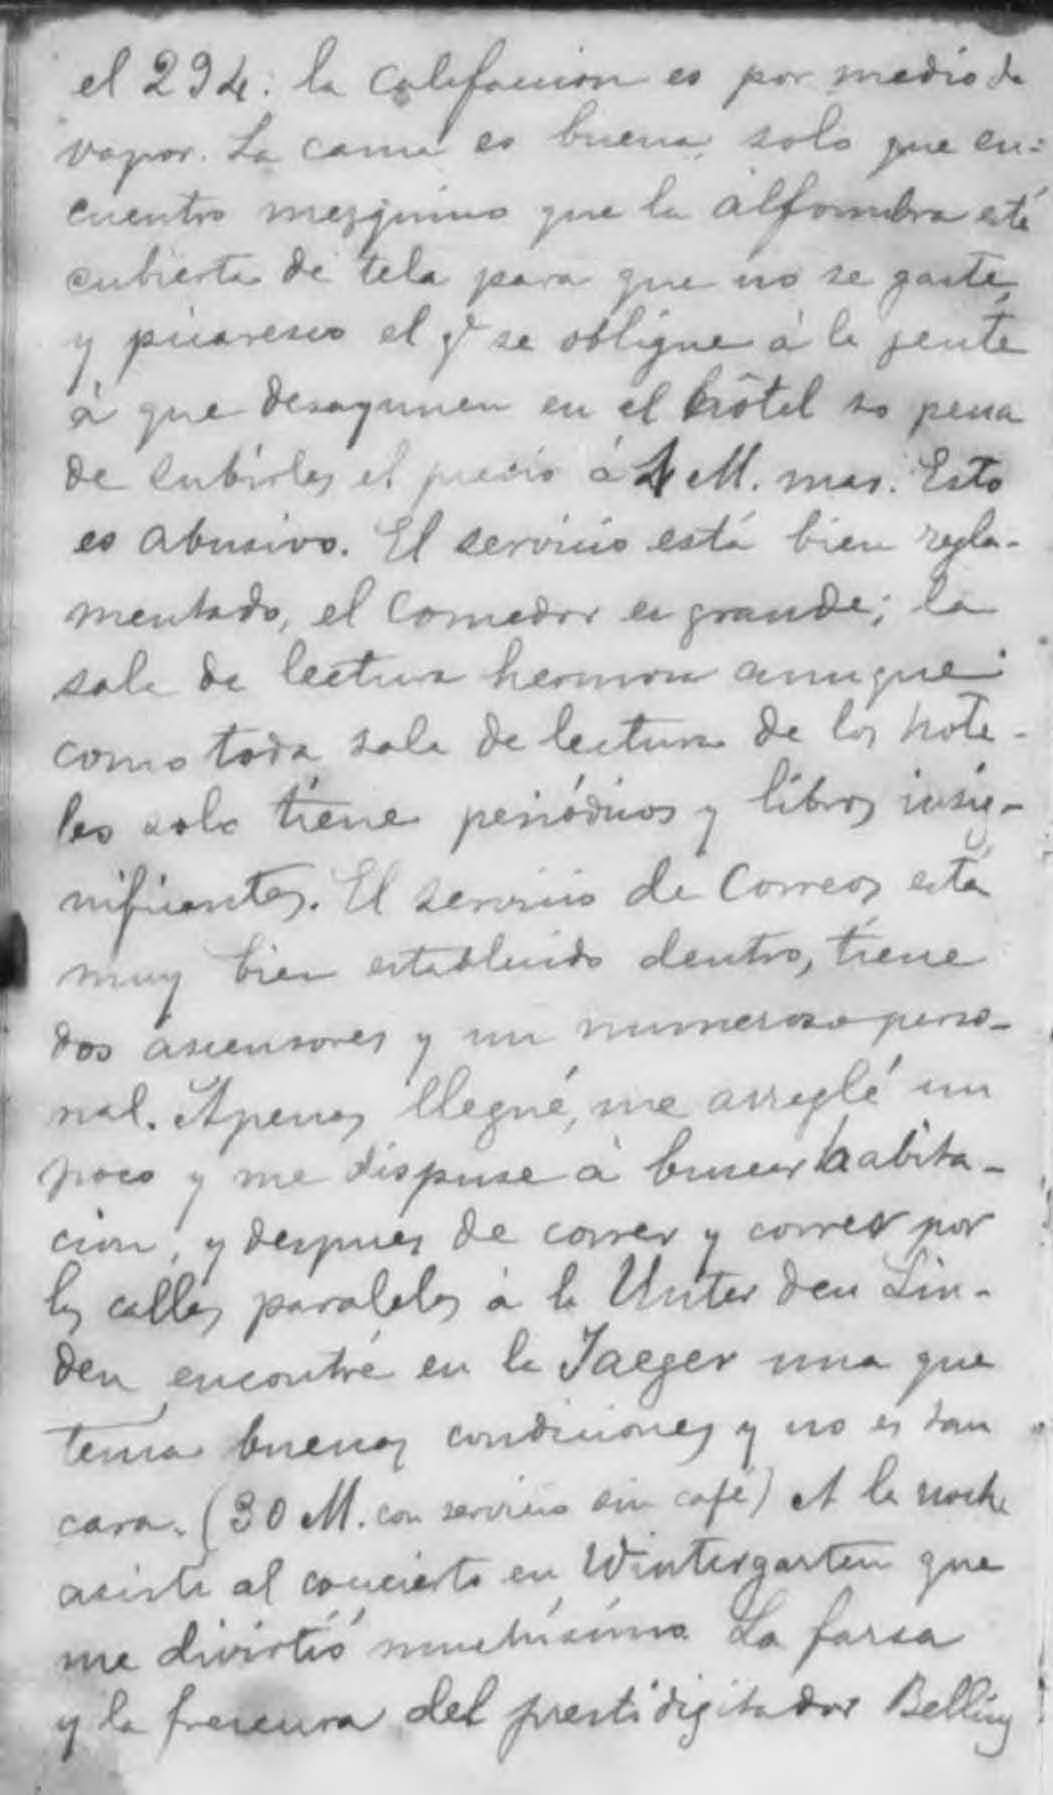 el 294: la calefaccion es por medio de
vapor. La cama es buena, solo que en-
cuentro mezquino que la alfombra esté
cubierta de tela para que no se gaste,
y picaresco el q^e se obligue á la gente
á que desayunen en el hôtel so pena
de subirles el precio á 4 M. mas. Esto
es abusivo. El servicio está bien regla-
mentado, el comedor es grande; la
sala de lectura hermosa aunque
como toda sala de lectura de los hote-
les solo tiene periódicos y libros insig-
nificantes. El servicio de Correos está
muy bien establecido dentro, tiene
dos ascensores y un numeroso perso-
nal. Apenas llegué, me arreglé un
poco y me dispuse á buscar habita-
cion, y despues de correr y correr por
las calles paralelas á la Unter den Lin-
den encontré en la Jaeger una que
tenia buenas condiciones y no es tan
cara. (30 M. con servicio sin café) A la noche
asistí al concierto en Wintergarten que
me divirtió muchísimo. La farsa
y la frescura del prestidigitador Belling